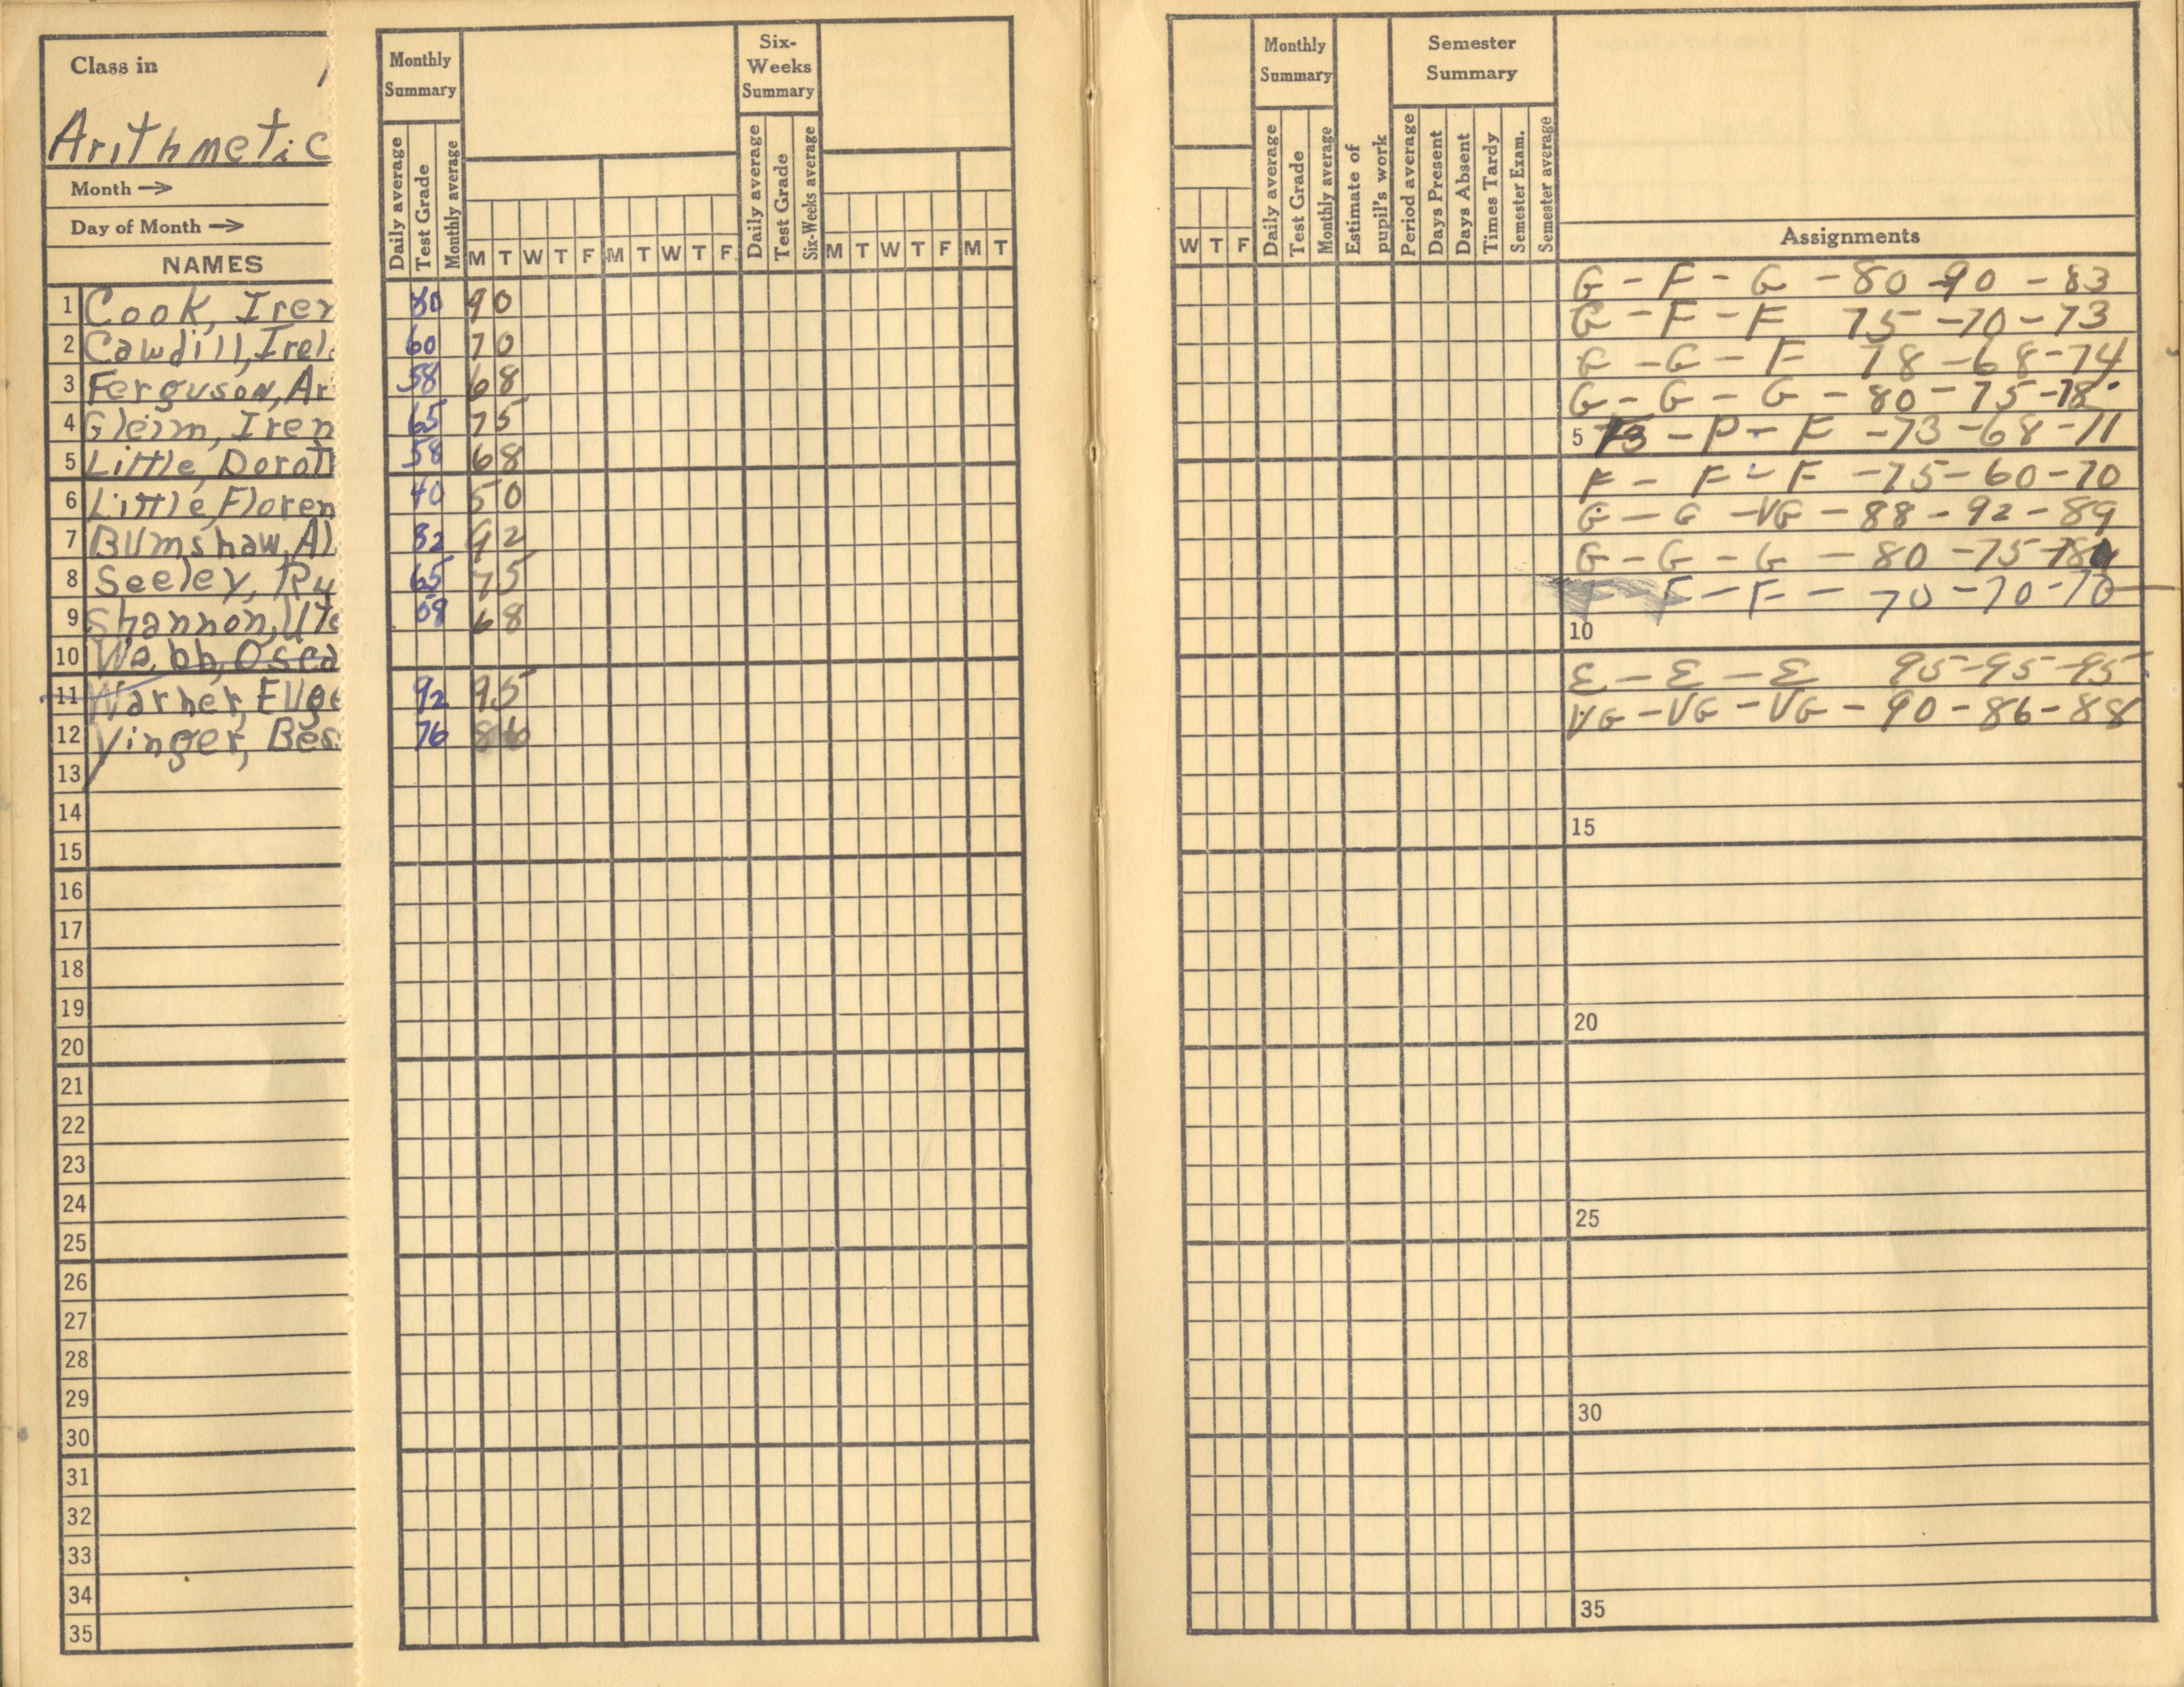 Class in
Arithmetic
Month →
Day of Month →
NAMES
1 Cook, Iren
2 Cawdill, Irel
3 Ferguson, Ar
4 Gleim, Iren
5 Little, Dorot
6 Little, Floren
7 Bumshaw, Al
8 Seeley, Ru
9 Shannon,
10 Webb, Osca
11 Warner, Euge
12 Yinger, Bes
13
14
15
16
17
18
19
20
21
22
23
24
25
26
27
28
29
30
31
32
33
34
35
Monthly Summary
Six-Weeks Summary
Daily average Test Grade Monthly average M T W T F M T W T F Daily average Test Grade Six-Weeks average M T W T F M T
80 90
60 70
58 68
65 75
58 68
40 50
82 92
65 75
58 68
92 95
76 86
Monthly Summary
Semester Summary
W T F Daily average Test Grade Monthly average Estimate of pupil's work Period average Days Present Days Absent Times Tardy Semester Exam. Semester average Assignments
G - F - G - 80 - 90 - 83
G - F - F 75 - 70 - 73
G - G - F 78 - 68 - 74
G - G - G - 80 - 75 - 78
5 - P - F - 73 - 68 - 71
F - F - F - 75 - 60 - 70
G - G - VG - 88 - 92 - 89
G - G - G - 80 - 75 - 78
F - F - 70 - 70 - 70
10
E - E - E 95 - 95 - 95
VG - VG - VG - 90 - 86 - 88
15
20
25
30
35